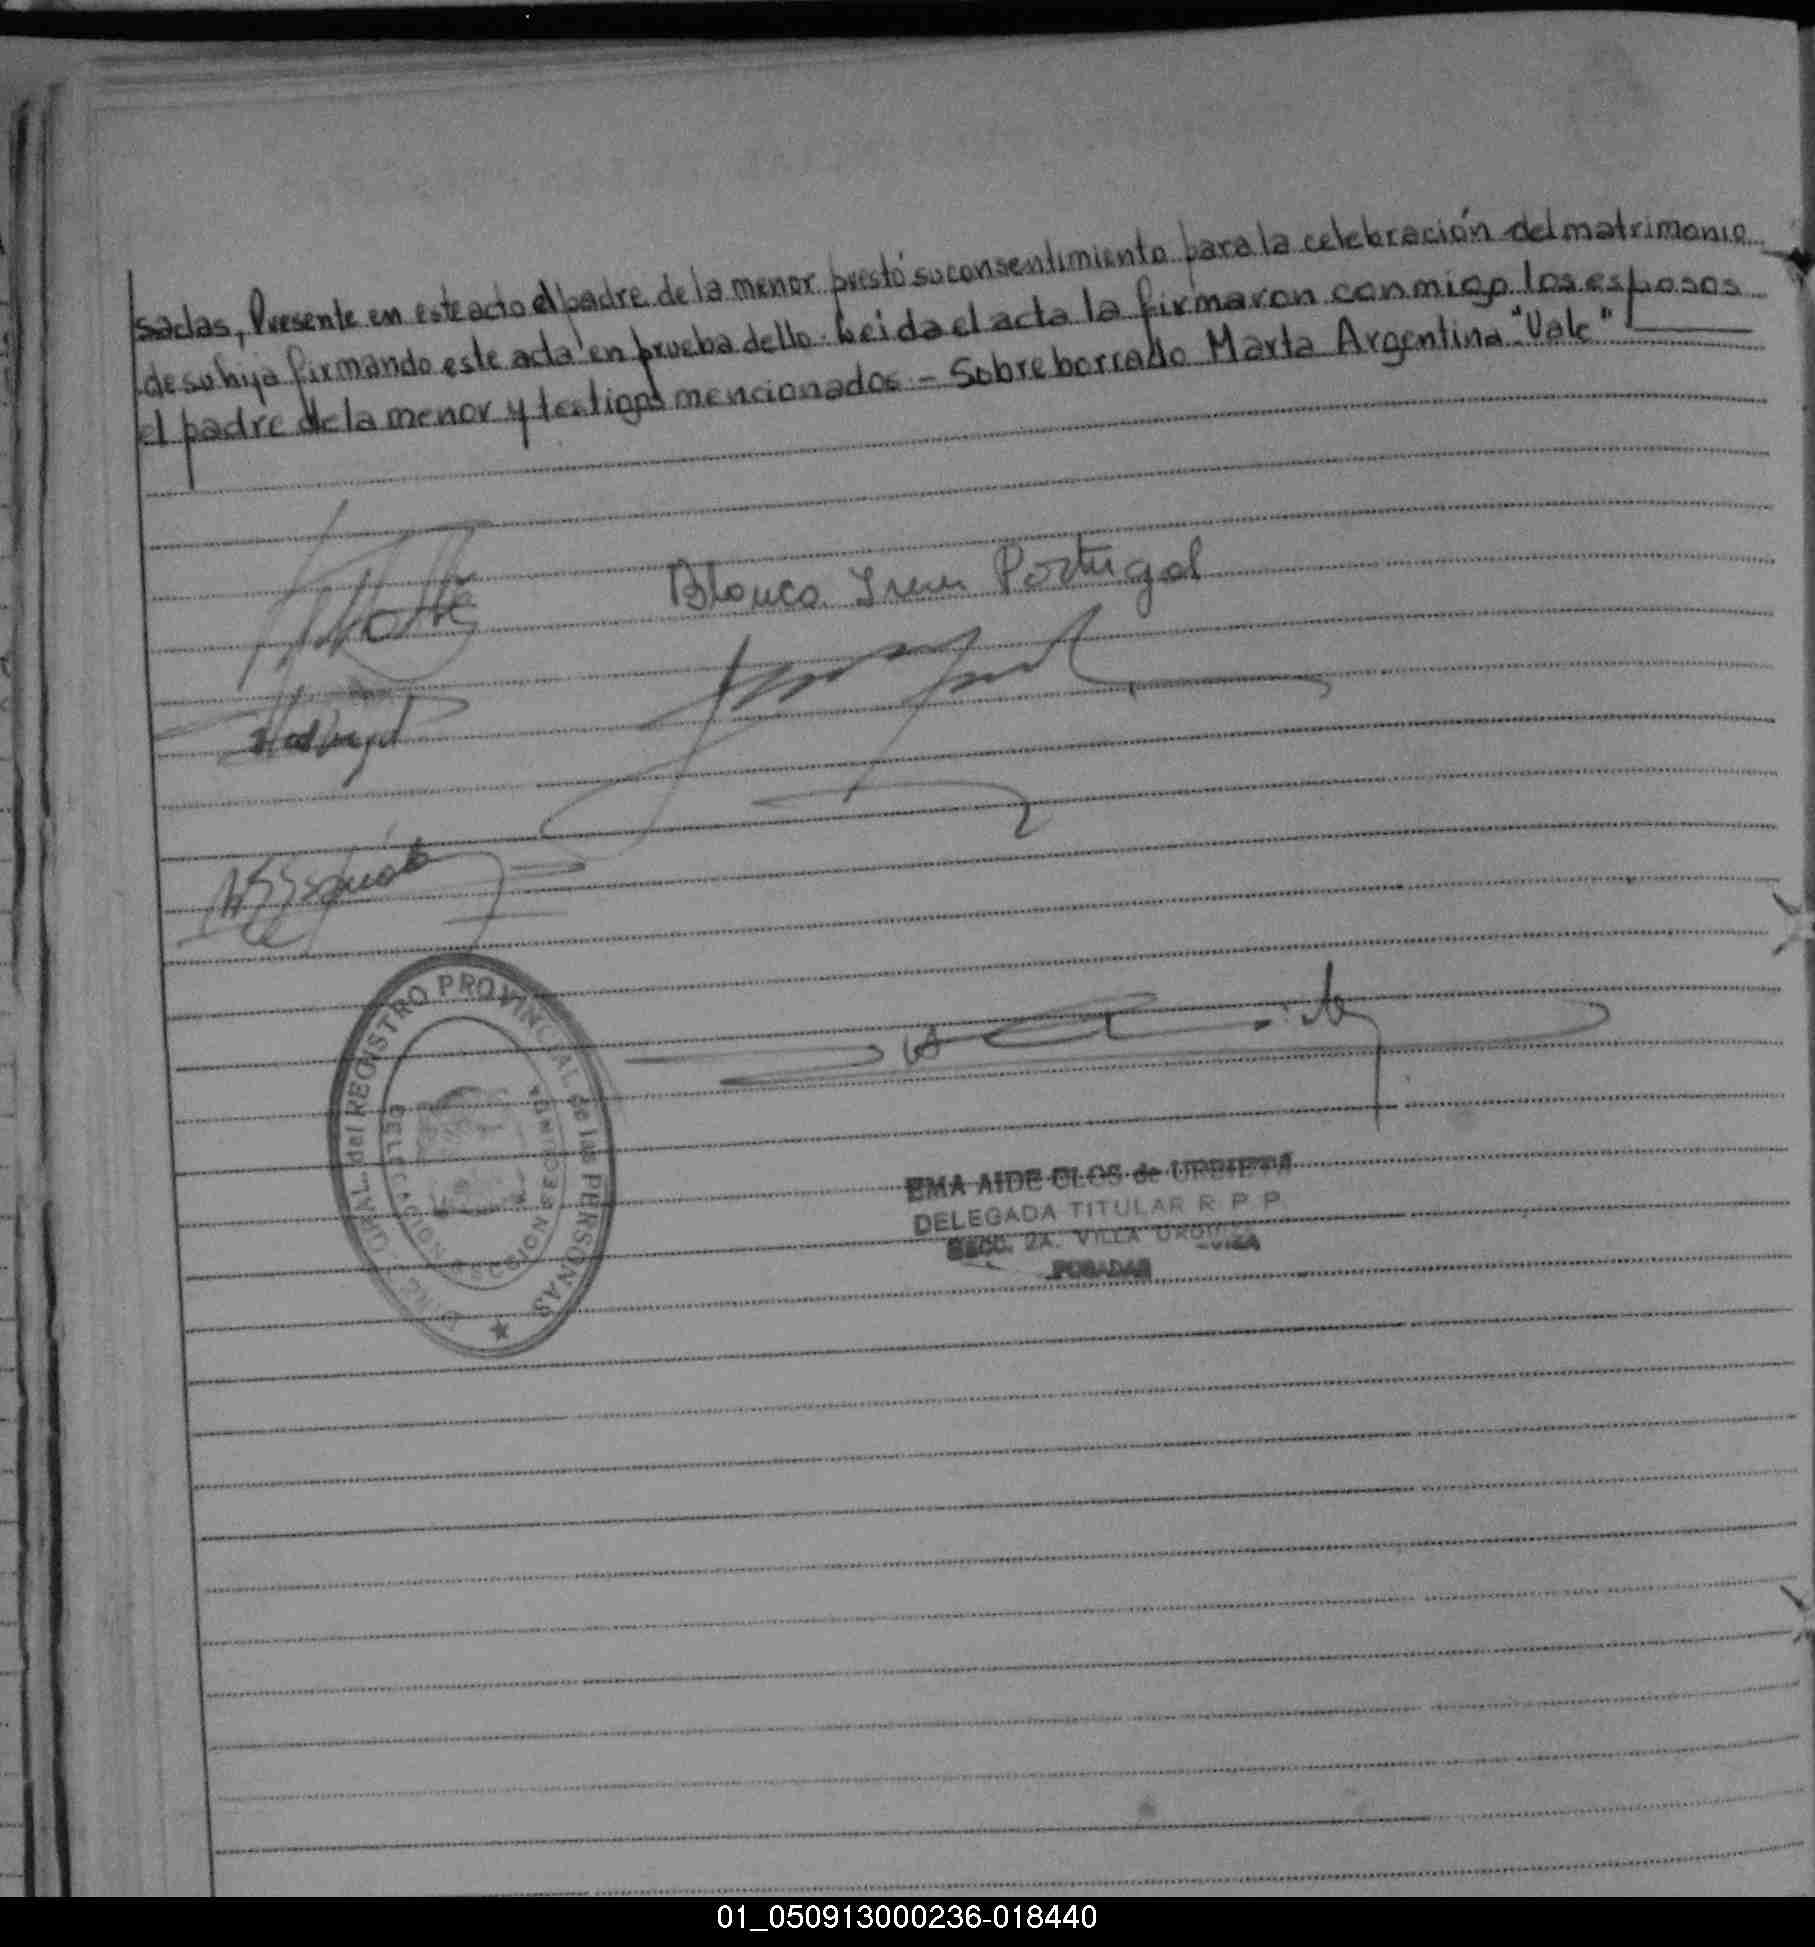 sadas, Presente en este acto el padre de la menor prestó su consentimiento para la celebración del matrimonio
de su hija firmando este acta en prueba dello. Leida el acta la firmaron conmigo los esposos
el padre de la menor y testigos mencionados - Sobre borrado Marta Argentina "Vale"
Blanca Irene Portugal
GRAL. del REGISTRO PROVINCIAL de las PERSONAS
EMA AIDE OLOS de URBIETA
DELEGADA TITULAR R. P. P.
SECC. 2A. VILLA URQUIZA
POSADAS
01_050913000236-018440